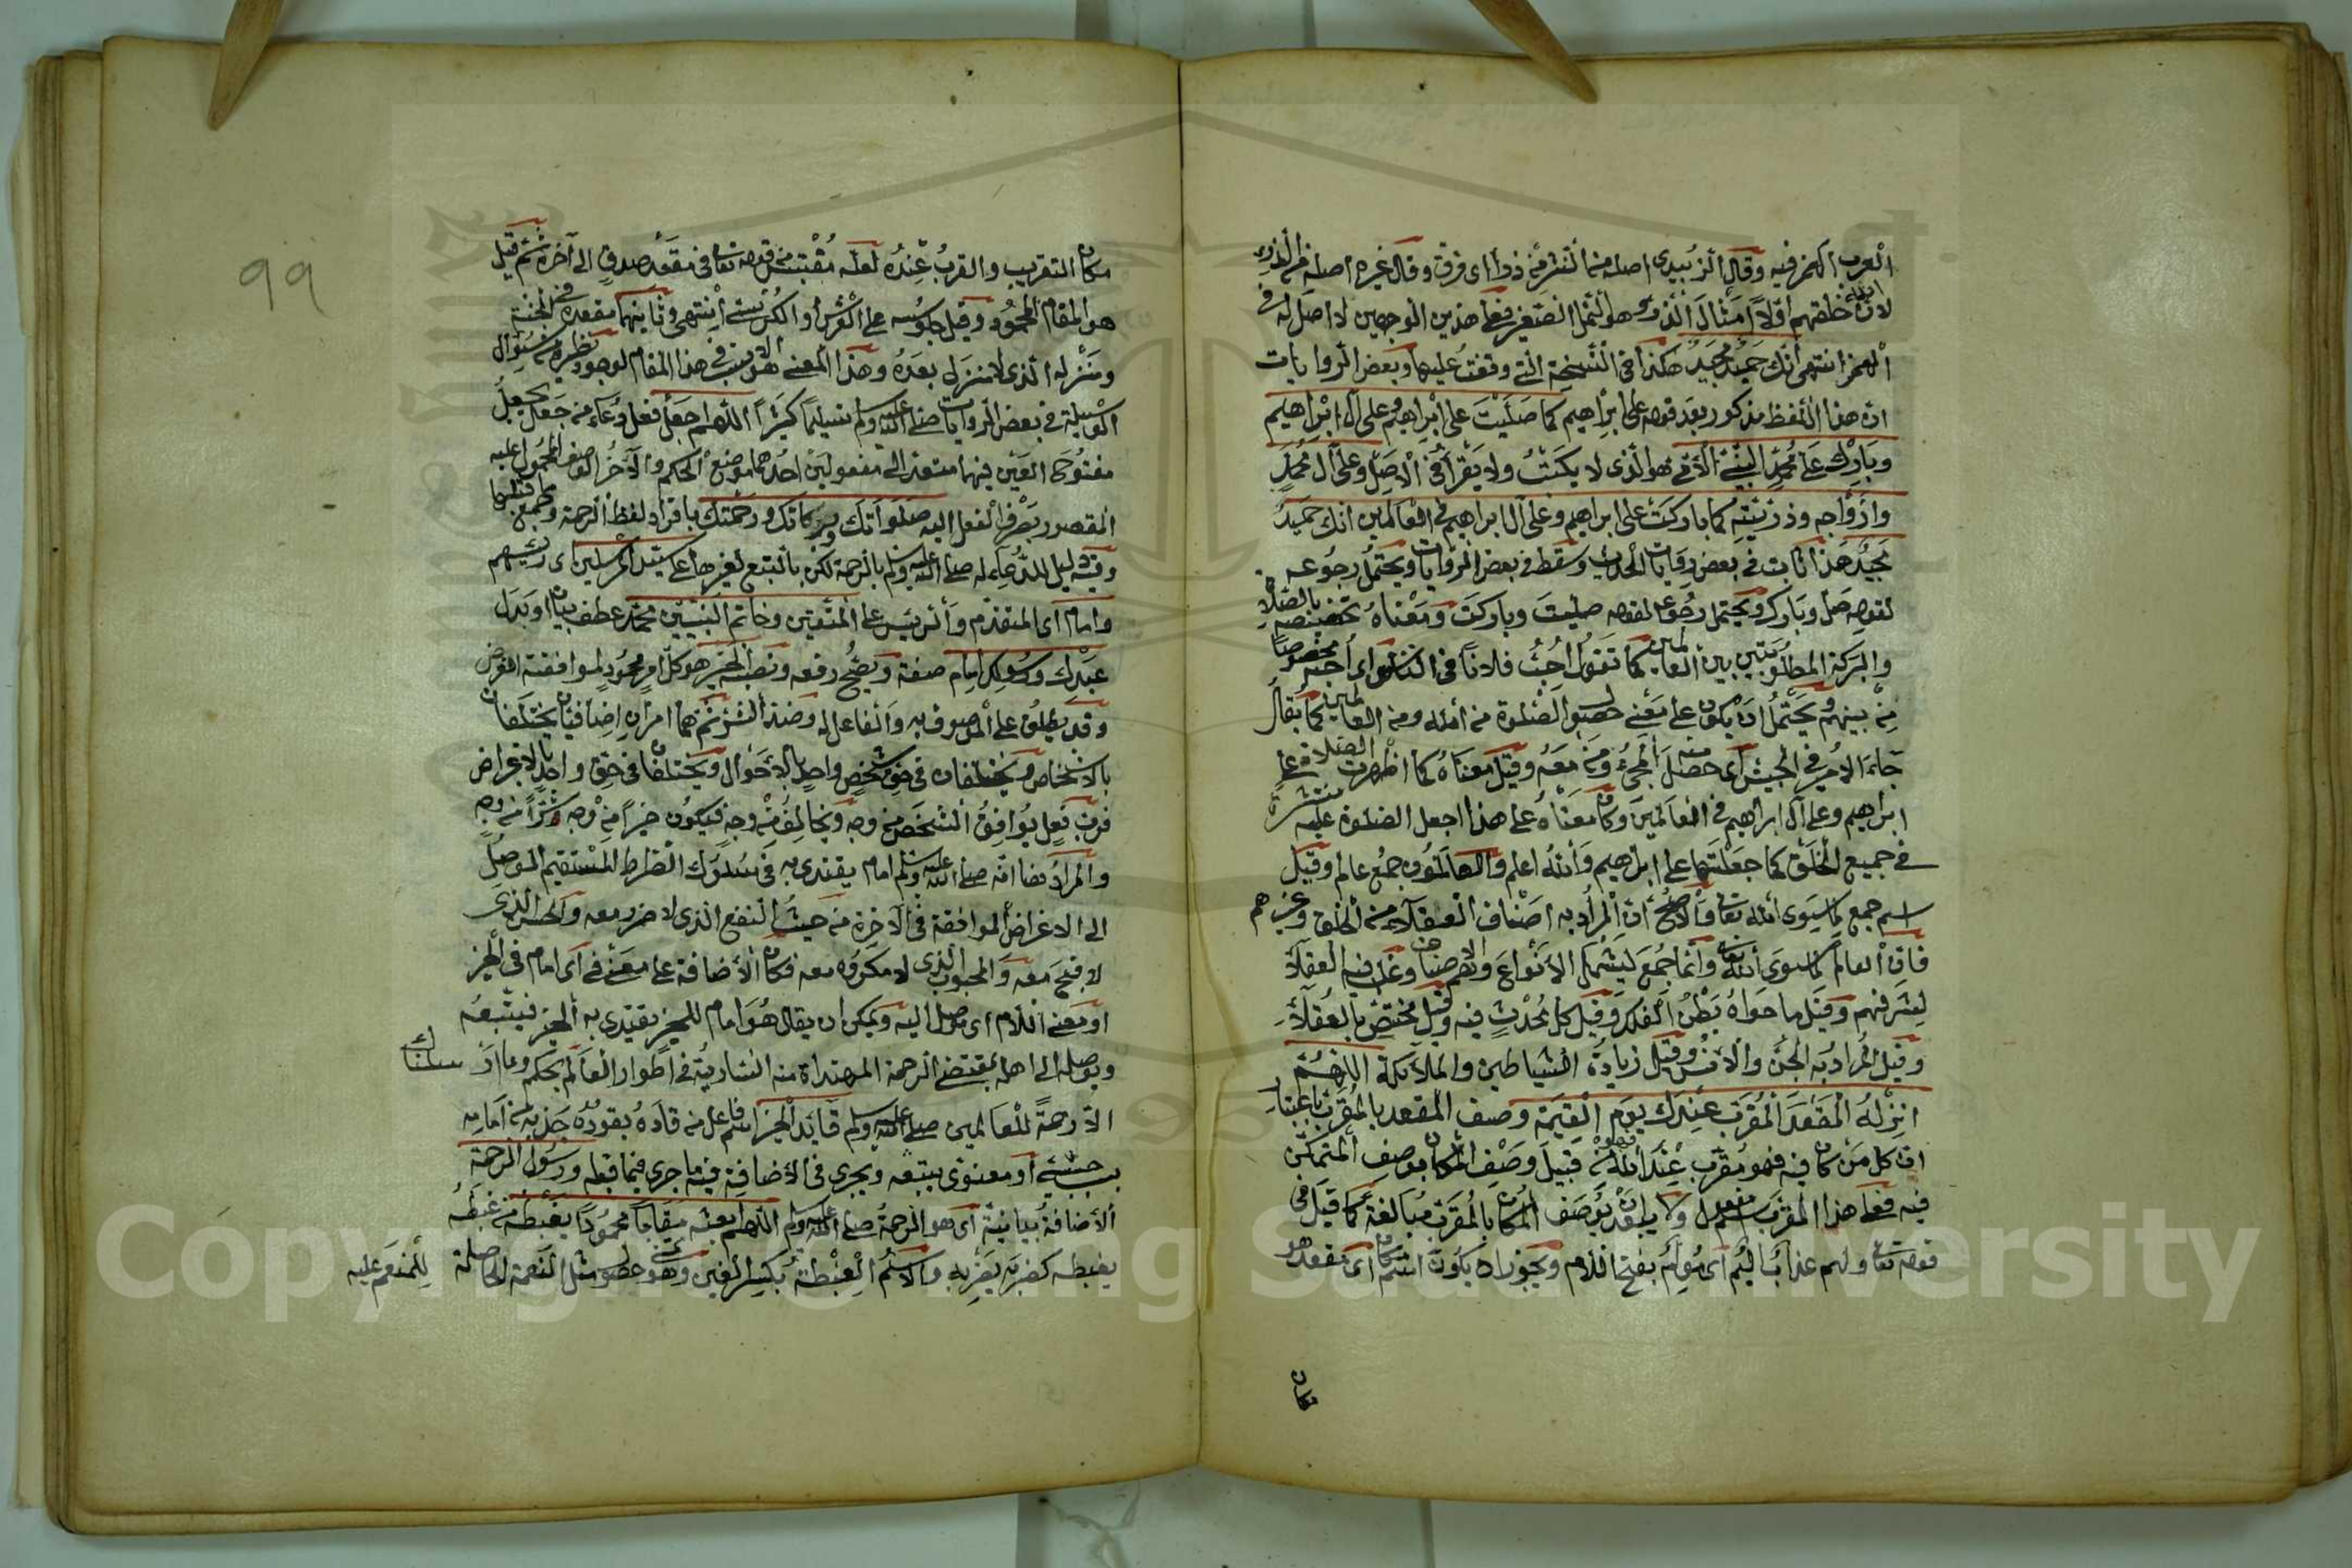 العرب الهمز فيه وقال الزبيدى اصله من النشر من ذرأ اى فرق وقال غيره اصله من الذر
لان الله خلقهم اولا امثال الذر وهو النمل الصغير فعلى هذين الوجهين لا اصل له فى
الهمز انتهى انك حميد مجيد هكذا فى النسخة التى وقفت عليها وبعض الروايات
ان هذا اللفظ مذكور بعد قوله على ابراهيم كما صليت على ابراهيم وعلى آل ابراهيم
وبارك على محمد النبى الامى هو الذى لا يكتب ولا يقرأ فى الاصل وعلى آل محمد
وازواجه وذريته كما باركت على ابراهيم وعلى آل ابراهيم فى العالمين انك حميد
مجيد هذا ثابت فى بعض روايات الحديث وسقط فى بعض الروايات ويحتمل رجوعه
لقوله صل وبارك ويحتمل رجوعه لقوله صليت وباركت ومعناه تخصيصه بالصلاة
والبركة المطلوبتين بين العالمين كما تقول احب فلانا فى الناس اى احبه مخصوصا
من بينهم ويحتمل ان يكون على معنى حصول الصلوة من الله ومن العالمين كما يقال
جاء الامير فى الجيش اى حصل المجىء منه ومن معه وقيل معناه كما اظهرت الصلاة على
ابراهيم وعلى آل ابراهيم فى العالمين وكان معناه على هذا اجعل الصلوة عليه منتشرة
فى جميع الخلق كما جعلتها على ابراهيم والله اعلم والعالمون جمع عالم وقيل
اسم جمع لما سوى الله تعالى والاصح ان المراد به اصناف العقلاء من الخلق وغيرهم
فان العالم لما سوى الله تعالى وانما جمع ليشمل الانواع والاصناف وغلب فيه العقلاء
لشرفهم وقيل ما حواه بطن الفلك وقيل كل محدث فيه وقيل مختص بالعقلاء
وقيل المراد به الجن والانس وقيل زيادة الشياطين والملائكة اللهم
انزله المقعد المقرب عندك يوم القيمة وصف المقعد بالمقرب باعتبار
ان كل من كان فيه فهو مقرب عند الله فهو من قبيل وصف المكان بوصف المتمكن
فيه فعلى هذا المقرب اسم مفعول ولا يبعد ان يوصف المكان بالمقرب مبالغة كما قيل فى
قوله تعالى ولهم عذاب اليم اى مؤلم بفتح اللام ويجوز ان يكون اسم مكان اى مقعد هو
مكان
مكان التقريب والقرب عنده لعله مقتبس من قوله تعالى فى مقعد صدق الى آخره ثم قيل
هو المقام المحمود وقيل جلوسه على العرش او الكرسى انتهى وثانيهما مقعده فى الجنة
ومنزله الذى لا منزل بعده وهذا المعنى هو الانسب فى هذا المقام لوجود نظيره من سؤال
الوسيلة فى بعض الروايات صلى الله عليه وسلم تسليما كثيرا اللهم اجعل فعل دعاء من جعل يجعل
مفتوحى العين فيهما متعد الى مفعولين احدهما موضع الحكم والآخر الوصف المحمول عليه
المقصود بصرف الفعل اليه صلواتك وبركاتك ورحمتك بافراد لفظ الرحمة وجمع ما قبلها
وفيه دليل للدعاء له صلى الله عليه وسلم بالرحمة لكن بالتبع لغيرها على سيد المرسلين اى رئيسهم
وامام اى المتقدم والرئيس على المتقين وخاتم النبيين محمد عطف بيان او بدل
عبدك ورسولك امام صفة ويصح رفعه ونصبه الخير هو كل امر محمود لموافقته الغرض
وقد يطلق على الموصوف به والفاعل له وضده الشر ثم هما امران اضافيان يختلفان
بالاشخاص ويختلفان فى حق شخص واحد بالاحوال ويختلفان فى حق واحد بالاغراض
فرب فعل يوافق الشخص من وجه ويخالفه من وجه فيكون خيرا من وجه وشرا من وجه
والمراد هنا انه صلى الله عليه وسلم امام يقتدى به فى سلوك الصراط المستقيم الموصل
الى الاغراض الموافقة فى الآخرة من حيث النفع الذى لا ضرر معه والحسن الذى
لا قبح معه والمحبوب الذى لا مكروه معه فكان الاضافة على معنى فى اى امام فى الخير
او بمعنى اللام اى موصل اليه ويمكن ان يقال هو امام للخير يقتدى به الخير فيتبعه
ويوصله الى اهله بمقتضى الرحمة المهتداة منه السارية فى اطوار العالم بحكم وما ارسلناك
الا رحمة للعالمين صلى الله عليه وسلم قائد الخير اسم فاعل من قاده يقوده جذبه من امامه
بسبب حسى او معنوى يتبعه ويجرى فى الاضافة فيه ما جرى فيما قبله ورسول الرحمة
الاضافة بيانية اى هو الرحمة صلى الله عليه وسلم اللهم ابعثه مقاما محمودا يغبطه من غبطه
يغبطه كضربه يضربه والاسم الغبطة بكسر الغين وهو تمنى حصول مثل النعمة الحاصلة للمنعم عليه
99
Copyright © King Saud University